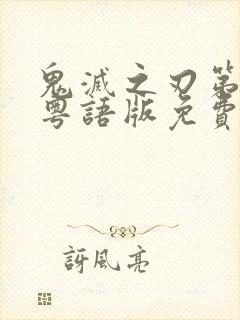 鬼滅之刃第
粵語版免費
訝風亮